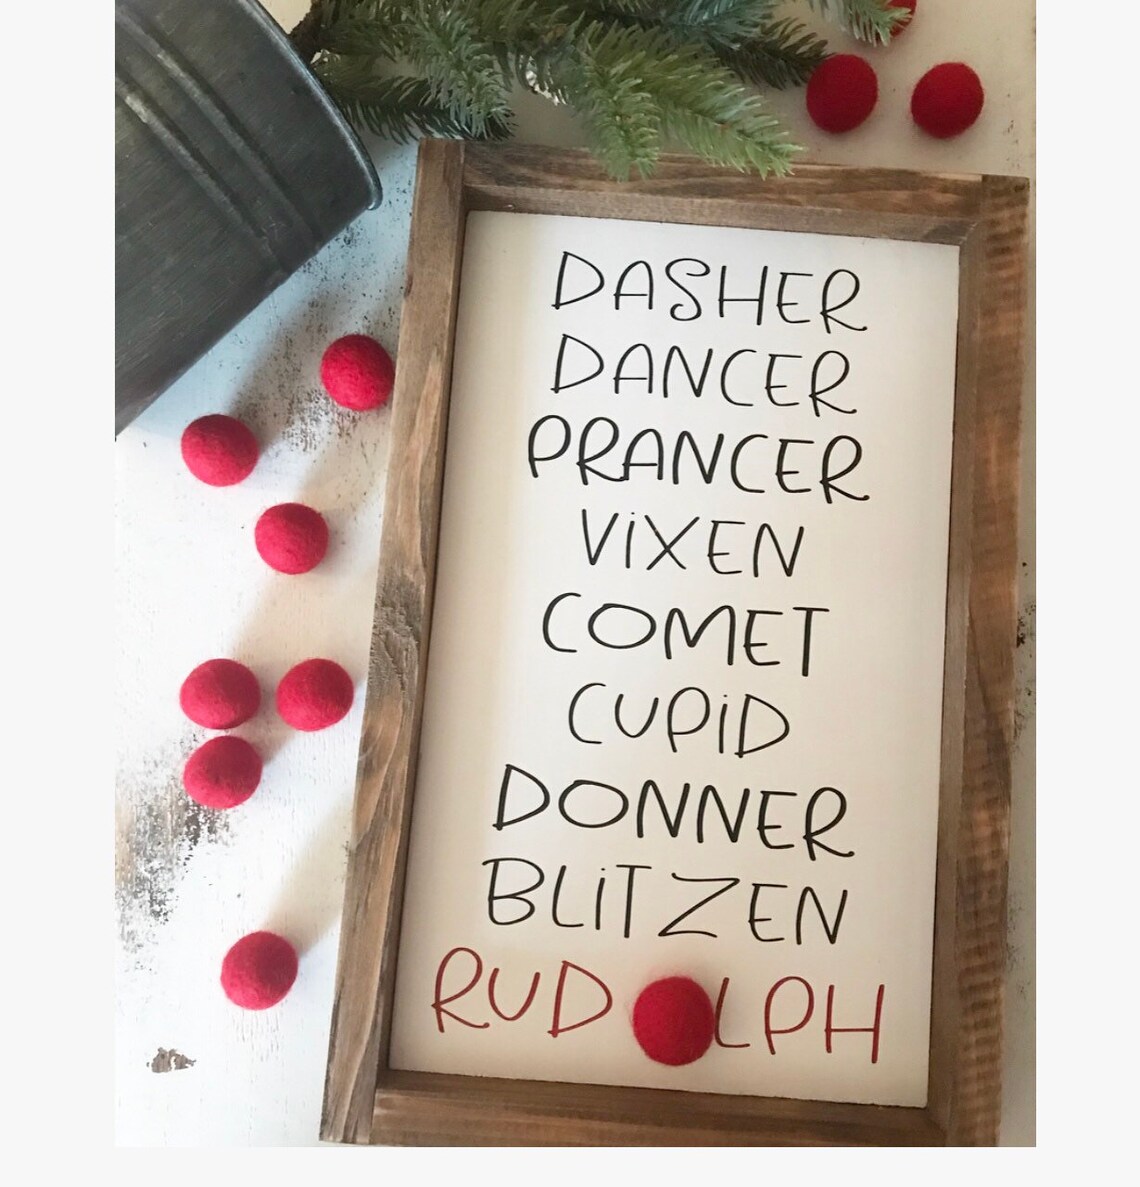 DASHER
DANCER
PRANCER
ViXEN
COMET
CUPiD
DONNER
BLiTZEN
RUDOLPH